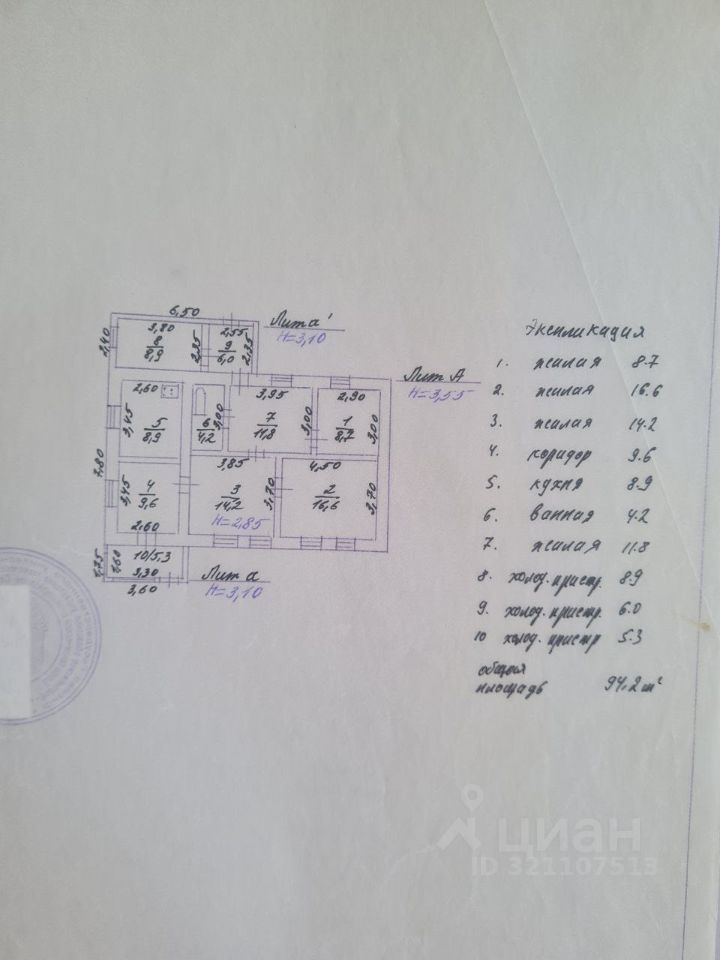 6,50
Лит а'
Н=3,10
3,80
8
8,9
2,35
2,55
9
6,0
2,35
2,40
Лит А
Н=3,55
2,60
3,45
5
8,9
6
4,2
3,00
3,95
7
11,8
3,00
2,90
1
8,7
3,00
7,80
3,45
4
9,6
2,60
3,85
3
14,2
Н=2,85
3,70
4,50
2
16,6
3,70
1,75
1,60
10/5,3
3,30
3,60
Лит а
Н=3,10
Экспликация
1. жилая 8.7
2. жилая 16.6
3. жилая 14.2
4. коридор 9.6
5. кухня 8.9
6. ванная 4.2
7. жилая 11.8
8. холод. пристр. 8.9
9. холод. пристр. 6.0
10 холод. пристр 5.3
общая
площадь 94,2 m²
циан
ID 321107513